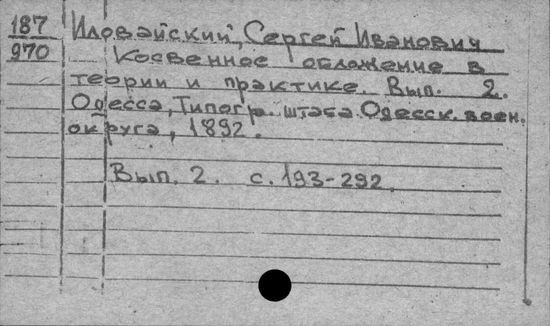 187 Иловайский, Сергей Иванович
970 Косвенное обложение в
теории и практике. Вып. 2.
Одесса, Типогр. штаба Одесск. воен.
округа, 1892.
Вып. 2. с. 193-292.